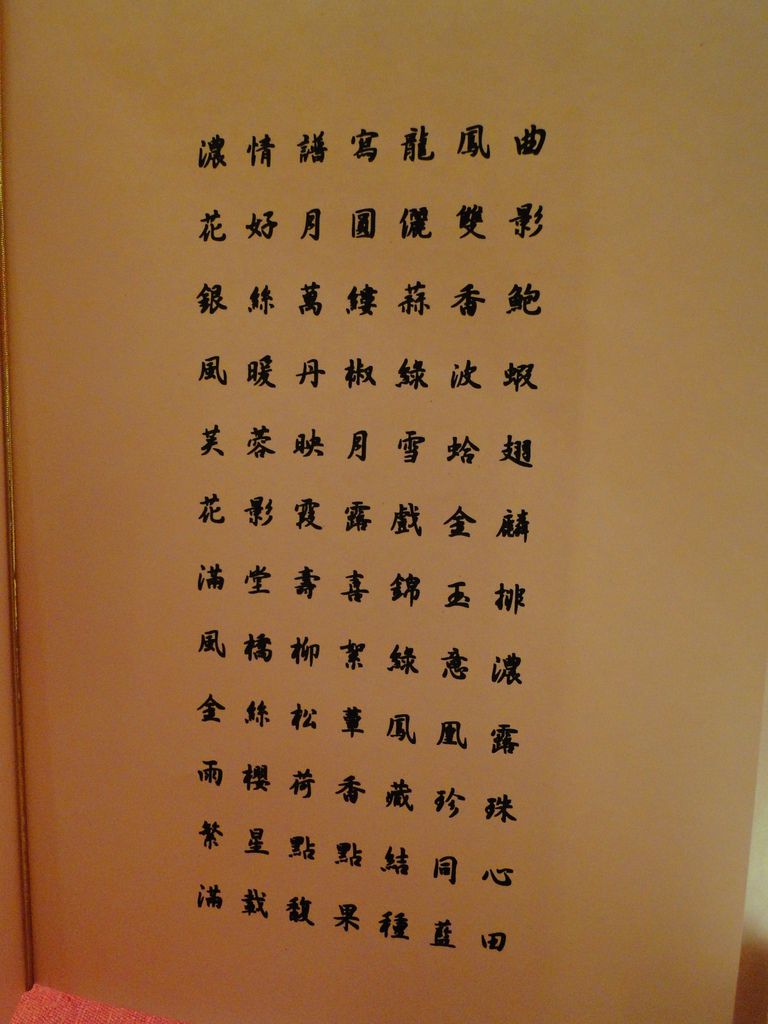 濃情譜寫龍鳳曲
花好月圓儷雙影
銀絲萬縷蒜香鮑
風暖丹椒綠波蝦
芙蓉映月雪蛤翅
花影霞露戲金麟
滿堂壽喜錦玉排
風橋柳絮綠意濃
金絲松蕈鳳凰露
雨櫻荷香藏珍珠
繁星點點結同心
滿載馥果種藍田